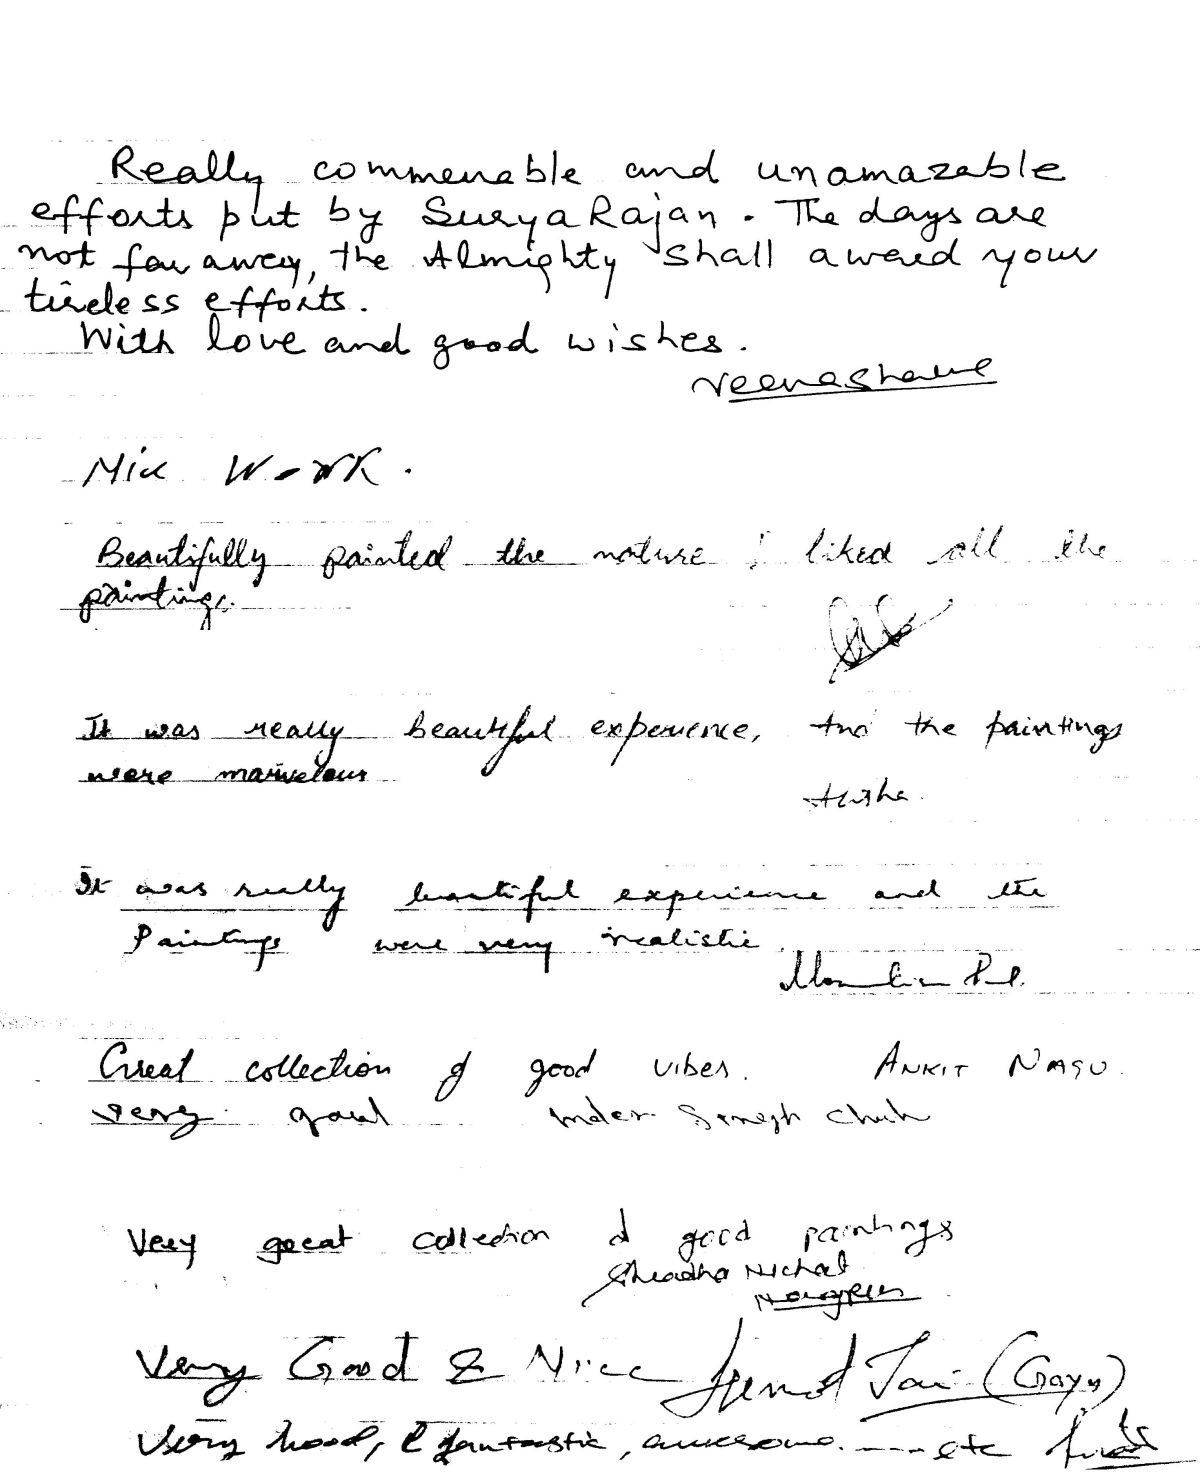 Really commenable and unamazable
efforts put by Surya Rajan. The days are
not far away, the Almighty shall award your
tireless efforts.
With love and good wishes.
Nice Work.
Beautifully painted the nature I liked all the
paintings.
It was really beautiful experience, And the paintings
were marvelous
It was really beautiful experience and the
Paintings were very realistic.
Great collection of good vibes. ANKIT
very good Inder Singh
Very great collection of good paintings
Shradha Nichat
Very Good & Nice Jai (Gaya)
Very Good, & fantastic, awesome ---- etc